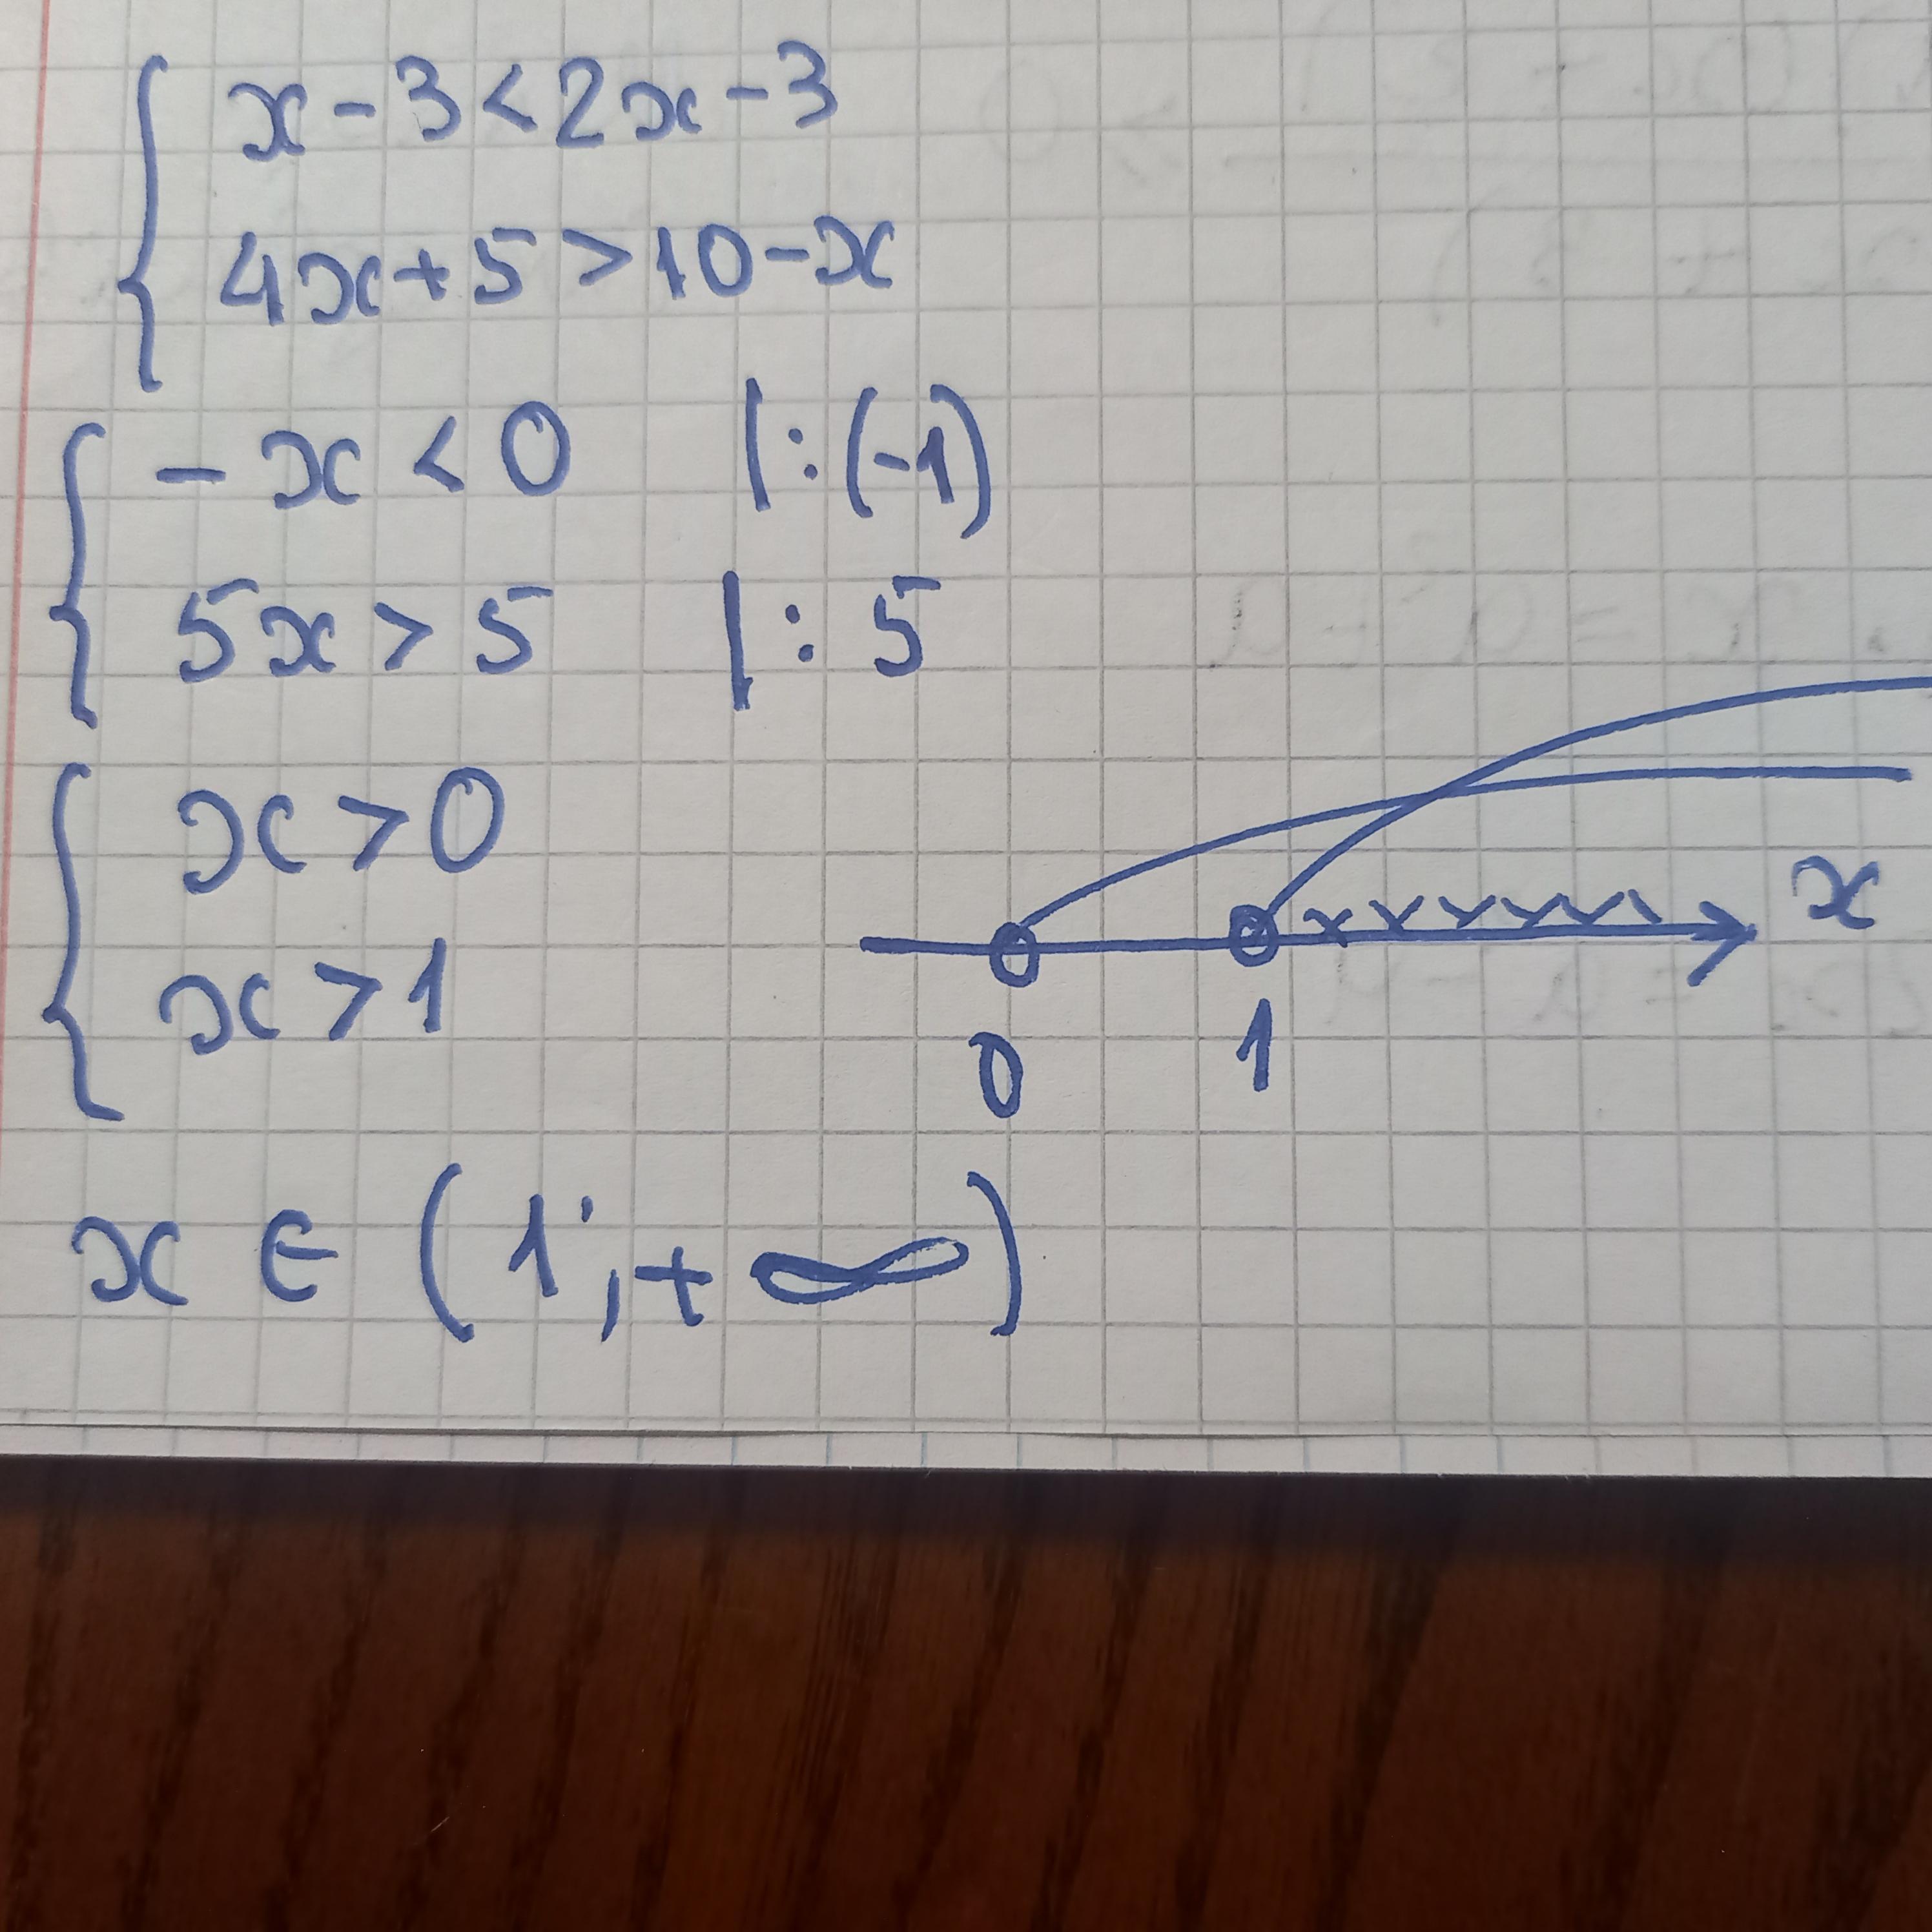 x - 3 < 2x - 3
4x + 5 > 10 - x
- x < 0 |: (-1)
5x > 5 |: 5
x > 0
x > 1
x
0 1
x ∈ (1; +∞)